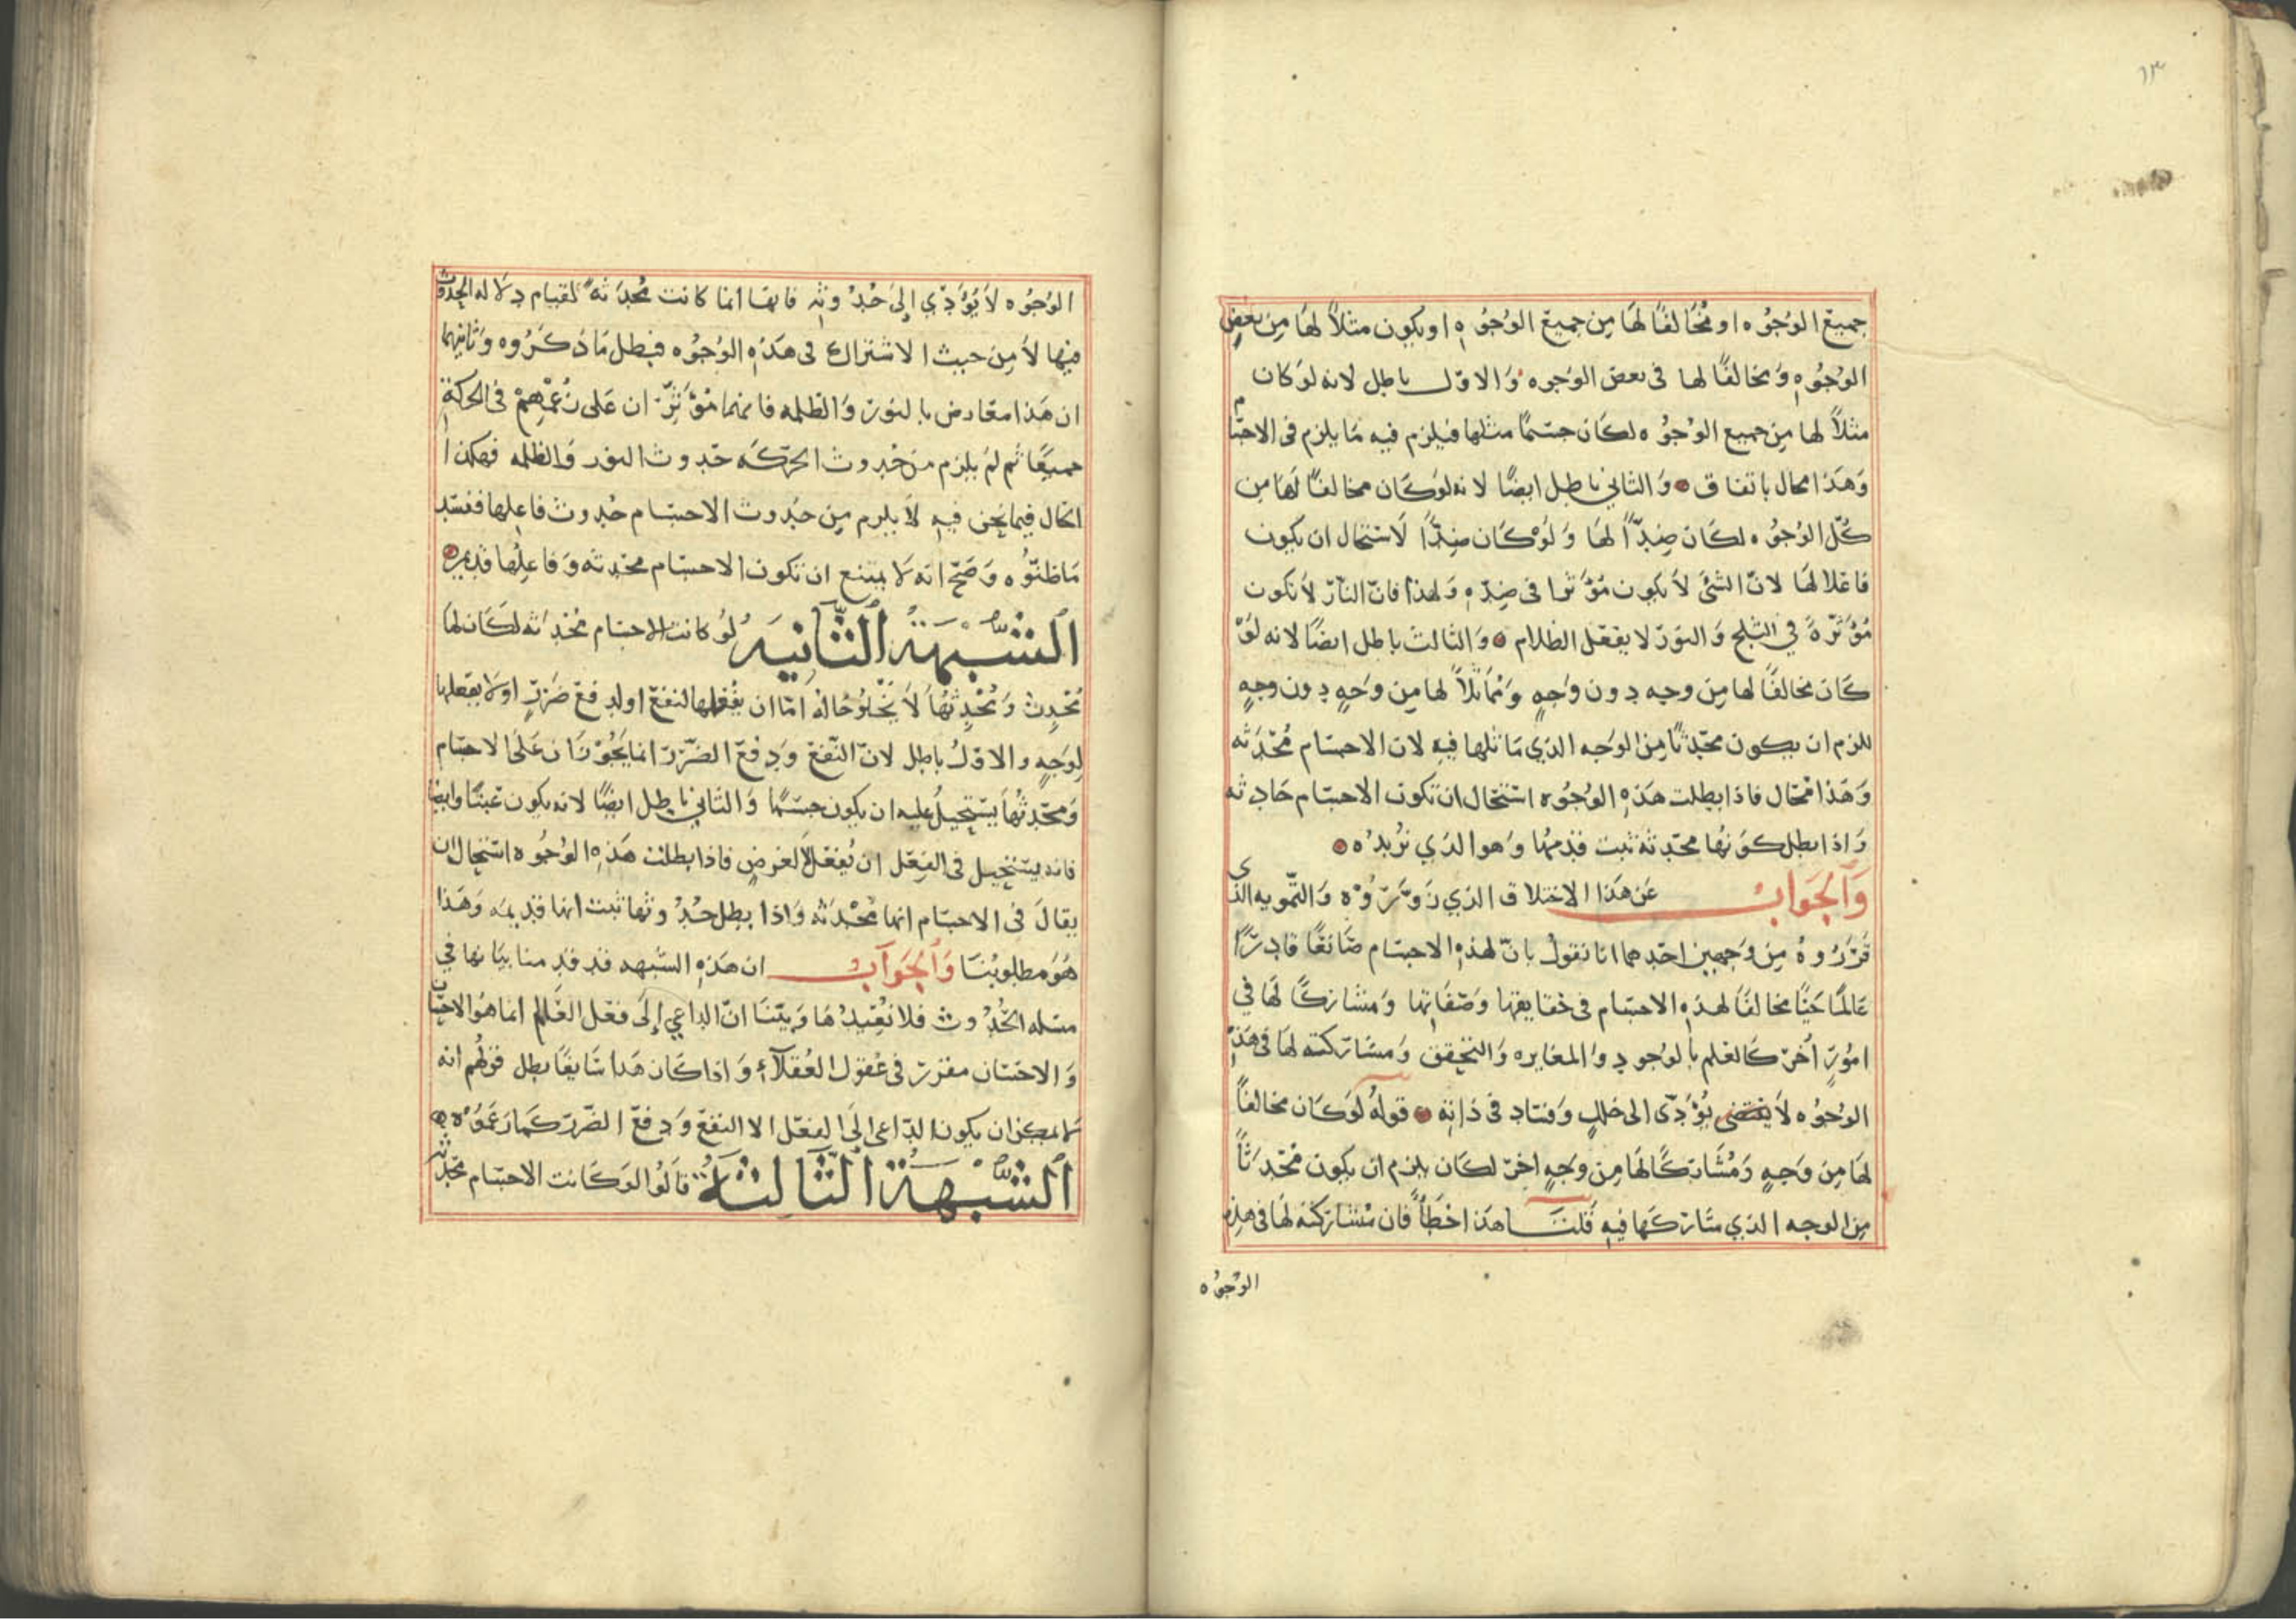 ١٣
جميع الوجوه او مخالفًا لها من جميع الوجوه او يكون مثلاً لها من بعض
الوجوه ومخالفًا لها فى بعض الوجوه والاول باطل لانه لو كان
مثلاً لها من جميع الوجوه لكان جسمًا مثلها فيلزم فيه ما يلزم فى الاجسام
وهذا محال باتفاق والثاني باطل ايضًا لانه لو كان مخالفًا لها من
كل الوجوه لكان ضدًّا لها ولو كان ضدًّا لاستحال ان يكون
فاعلا لها لان الشئ لا يكون مؤثرا فى ضده ولهذا فان النار لا تكون
مؤثرة في الثلج والنور لا يفعل الظلام والثالث باطل ايضًا لانه لو
كان مخالفًا لها من وجه دون وجهٍ ومماثلاً لها من وجهٍ دون وجهٍ
للزم ان يكون محدثًا من الوجه الذي ماثلها فيه لان الاجسام محدثه
وهذا محال فاذا بطلت هذه الوجوه استحال ان تكون الاجسام حادثه
واذا بطل كونها محدثه ثبت قدمها وهو الذي نريده
والجواب عن هذا الاختلاق الذي زوروه والتمويه الذى
قرروه من وجهين احدهما انا نقول بان لهذه الاجسام صانعًا قادرًا
عالمًا حيًّا مخالفًا لهذه الاجسام فى حقايقها وصفاتها ومشاركًا لها في
امورٍ أخر كالعلم بالوجود والمغايره والتحقق ومشاركته لها فى هذه
الوجوه لا يؤدى الى خللٍ وفساد فى ذاته قوله لو كان مخالفًا
لها من وجهٍ ومشاركًا لها من وجهٍ اخر لكان يلزم ان يكون محدثًا
من الوجه الذي شاركها فيه قلنا هذا خطأ فان مشاركته لها فى هذه
الوجوه
الوجوه لا يؤدي إلى حدوثه فانها انما كانت محدثه لقيام دلاله الحدوث
فيها لا من حيث الاشتراك فى هذه الوجوه فبطل ما ذكروه وثانيهما
ان هذا معارض بالنور والظلمه فانهما مؤثران على زعمهم فى الحركة
جميعًا ثم لم يلزم من حدوث الحركه حدوث النور والظلمه فهكذا
الحال فيما نحن فيه لا يلزم من حدوث الاجسام حدوث فاعلها ففسد
ما ظنوه وصح انه لا يمتنع ان تكون الاجسام محدثه وفاعلها قديم
الشبهة الثانيه لو كانت الاجسام محدثه لكان لها
محدث ومحدثها لا يخلو حاله اما ان يفعلها لنفع او لدفع ضررٍ او لا يفعلها
لوجهٍ والاول باطل لان النفع ودفع الضرر انما يجوزان على الاجسام
ومحدثها يستحيل عليه ان يكون جسمًا والثاني باطل ايضًا لانه يكون عبثًا وايضا
فانه يستحيل فى الفعل ان يفعل لا لغرضٍ فاذا بطلت هذه الوجوه استحال ان
يقال فى الاجسام انها محدثه واذا بطل حدوثها ثبت انها قديمه وهذا
هو مطلوبنا والجواب ان هذه الشبهه قد قدمنا بيانها في
مسله الحدوث فلا نعيدها وبينا ان الداعي إلى فعل العالم انما هو الاحسان
والاحسان مقرر فى عقول العقلاء واذا كان هذا سايغًا بطل قولهم انه
لا يمكن ان يكون الداعى الى الفعل الا النفع ودفع الضرر كما زعموه
الشبهة الثالثة قالوا لو كانت الاجسام محدثه